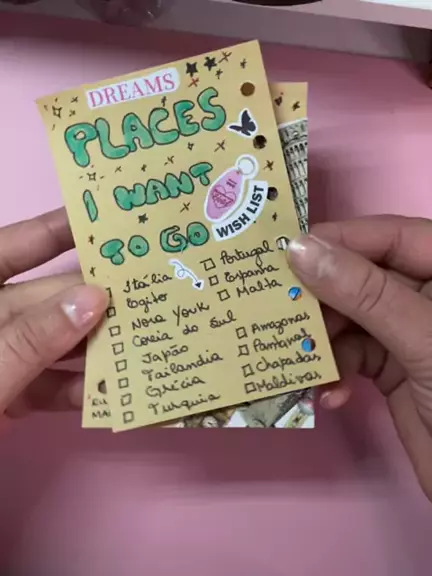 DREAMS
PLACES
I WANT
TO GO
WISH LIST
Itália
Egito
Nova York
Coreia do Sul
Japão
Tailandia
Grécia
Turquia
Portugal
Espanha
Malta
Amazonas
Pantanal
Chapadas
Maldivas